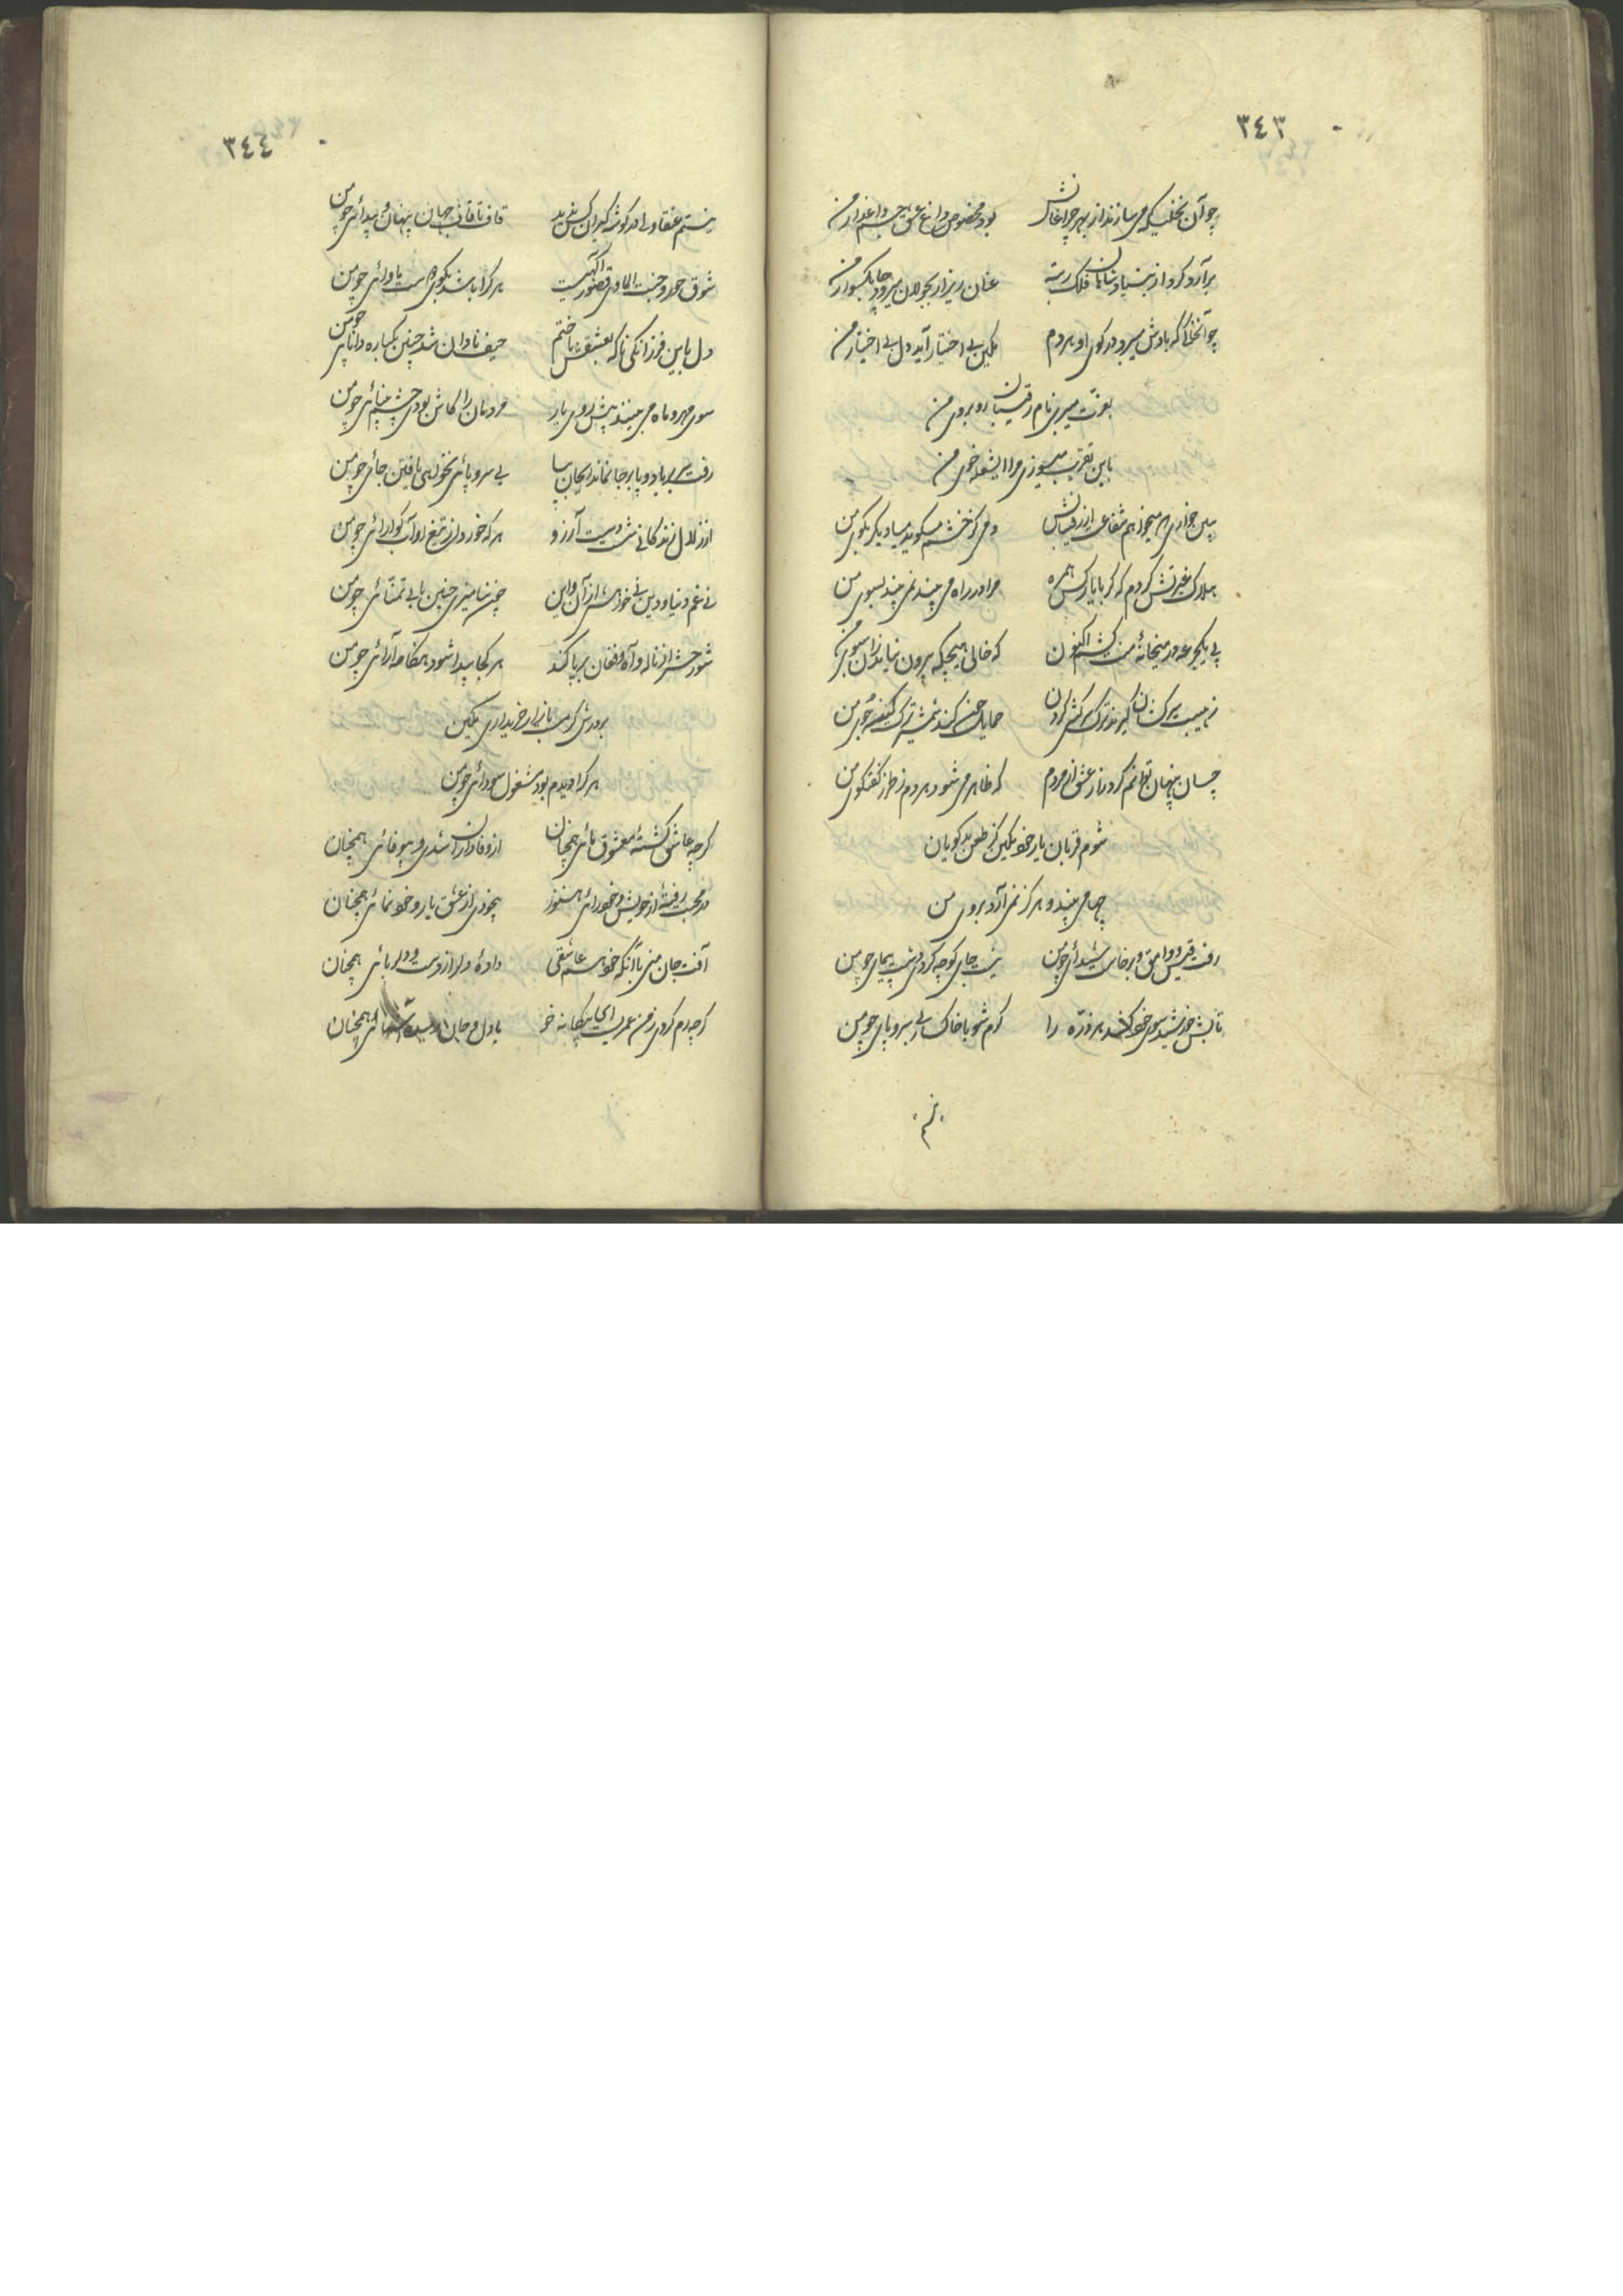 ٣٤٣
چو آن نخلیکه می سازند از بهر چراغانش بود مخصوص داغ عشق جسم داغدار من
برآرد گرد از بنیاد شاهان فلک رتبه عنان ریز ار بجولان میرود چابکسوار من
چو آنخاک که بادش میبرد در کوی او هر دم مکین بی اختیار آید دل بی اختیار من
بعزت میبری نام رقیبان روبروی من
باین تقریب میسوزی مرا ای شعله خوی من
باین خواری هم میخواهم شفاعت از رقیبانش دمی کز خشم میگوید میا دیگر بکوی من
هلاک غیرتش گردم که گر با یار کس همره مرا در راه می بیند نمی بیند بسوی من
پی یکجرعه در میخانه منت میکشم اکنون که خالی هیچگه بیرون نیامد زان سبوی من
ز هیبت سرکشان گیرند ترک سرکشی کردن حمایل چون کند شمشیر ترک کینه جوی من
چسان پنهان توانم کرد راز عشق از مردم که ظاهر می شود هر دم ز طرز گفتگوی من
شوم قربان یار خود مکین کز طعن بدگویان
چها می بیند و هرگز نمی آرد بروی من
رفت قیس و وامق و برخاست شیدائی چو من نیست جای کوچه گردی دشت پیمای چو من
تابش خورشید سوی خود کشد هر ذره را گرم شو با خاکسار بی سر و پای چو من
٣٤٤
نیستم عنقا ولی در گوشه گیران کس ندید قاف تا قاف جهان پنهان و پیدائی چو من
شوق حور و جنت الماوی قصور آگهیست هر کرا باشد بکوی دوست ماوائی چو من
دل باین فرزانگی ناگه بعشقش باختم حیف نادان شد چنین یکباره دانایی چو من
سوی مهر و ماه می بینند پیش روی یار مردمان را کاش بودی چشم بینائی چو من
رفت سر بر باد و پا بر جا نماند ایجان بیا بی سر و پائی نخواهی یافتن جائی چو من
از زلال زندگانی شست دست آرزو هر که خورد از تیغ او آب گوارائی چو من
نی غم دنیا و دین نی خواهش از آن و این چون تنا میزی چنین با بی تمنائی چو من
شور حشر از ناله و آه و فغان برپا کند هر کجا پیدا شود هنگامه آرائی چو من
بر درش گرمست بازار خریداری مکین
هر کرا دیدم بود مشغول سودائی چو من
گرچه عاشق گشته معشوق مائی همچنان از وفاداران شدی و بیوفائی همچنان
در محبت رفته از خویش و خودرائی هنوز بیخودی از عشق یار و خودنمائی همچنان
آفت جان منی با آنکه خود هم عاشقی داده دل از دست و دلربائی همچنان
گرچه رم کردی ز من عمریست ای بیگانه خو با دل و جان آشنائی همچنان